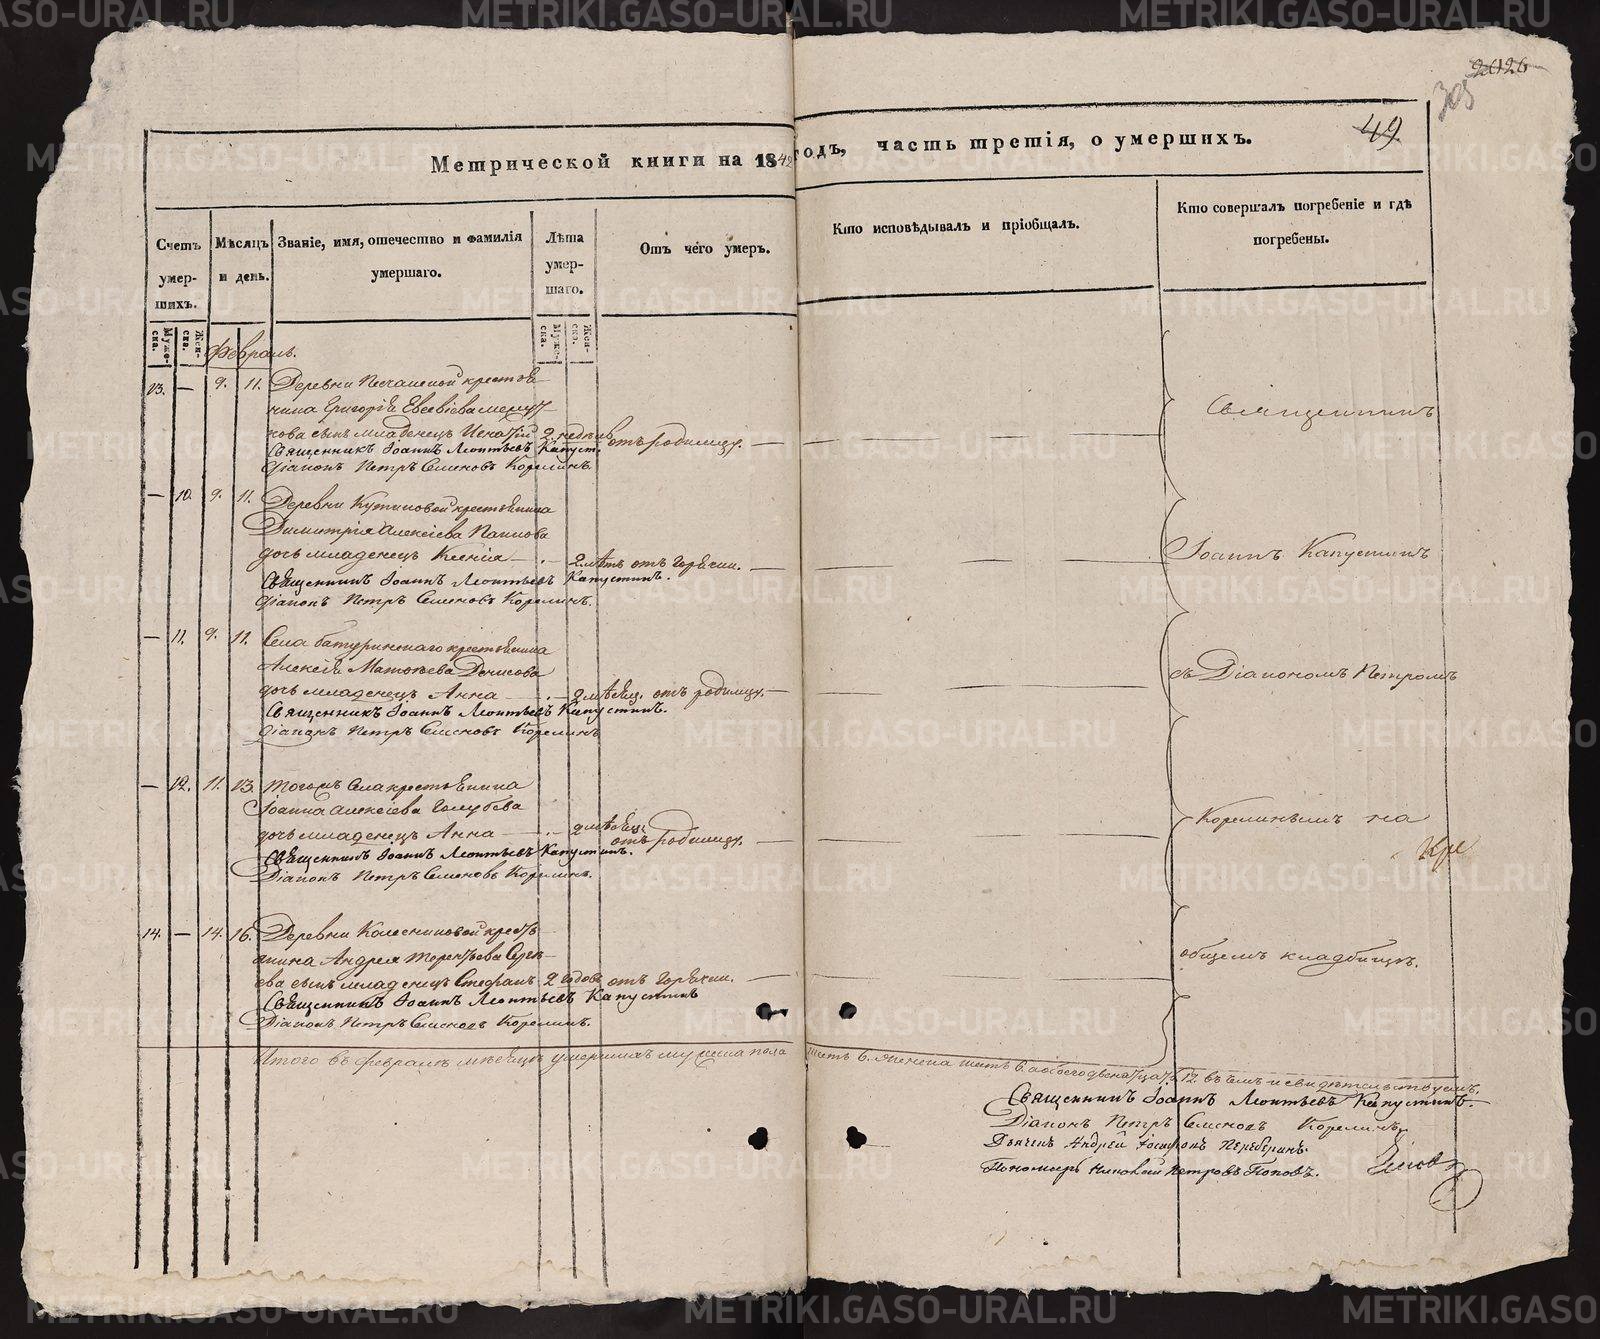 2026
305
49
Метрической книги на 1842 годъ, часть третія, о умершихъ.
Счетъ умер-шихъ.
Мѣсяцъ и день.
Званіе, имя, отечество и фамилія умершаго.
Лѣта умер-шаго.
Отъ чего умеръ.
Кто исповѣдывалъ и пріобщалъ.
Кто совершалъ погребеніе и гдѣ погребены.
Муже-ска.
Жен-ска.
Муже-ска.
Жен-ска.
Февраль.
13. — 9. 11. Деревни Песчаной крестья-
нина Григорія Евсевіева
сынъ младенецъ 2. недѣль отъ родимцу.
Священникъ Іоаннъ Леонтьевъ Капуст.
Діаконъ Петръ Семеновъ Корелинъ.
— 10. 9. 11. Деревни крестьянина
Димитрія Алексіева
дочь младенецъ Ксенія 2 лѣтъ отъ горячки.
Священникъ Іоаннъ Леонтьевъ Капустинъ.
Діаконъ Петръ Семеновъ Корелинъ.
— 11. 9. 11. Села Батуринскаго крестьянина
Алексія Матвѣева Денисова
дочь младенецъ Анна 2 мѣсяц. отъ родимцу.
Священникъ Іоаннъ Леонтьевъ Капустинъ.
Діаконъ Петръ Семеновъ Корелинъ
— 12. 11. 13. Тогожъ села крестьянина
Іоанна Алексіева Голубева
дочь младенецъ Анна 2 мѣсяц. отъ родимцу.
Священникъ Іоаннъ Леонтьевъ Капустинъ.
Діаконъ Петръ Семеновъ Корелинъ.
14. — 14. 16. Деревни Колесниковой кресть-
янина Андрея Терентьева
сынъ младенецъ Стефанъ 2 годовъ отъ горячки.
Священникъ Іоаннъ Леонтьевъ Капустинъ
Діаконъ Петръ Семеновъ Корелинъ.
Священникъ
Іоаннъ Капустинъ
съ Діакономъ Петромъ
Корелинымъ на
общемъ кладбищѣ.
Итого въ февралѣ мѣсяцѣ умершихъ мужеска пола шесть 6. женска шесть 6. а обоего двенатцать 12. въ чемъ и свидѣтельствуемъ.
Священникъ Іоаннъ Леонтьевъ Капустинъ.
Діаконъ Петръ Семеновъ Корелинъ
Дьячекъ Андрей
Пономарь Николай Петровъ Поповъ.
METRIKI.GASO-URAL.RU